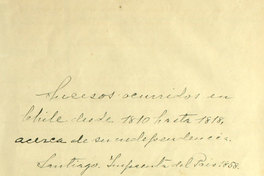 Sucesos ocurridos en
Chile desde 1810 hasta 1818,
acerca de su independencia.
Santiago. Imprenta del País. 1858.